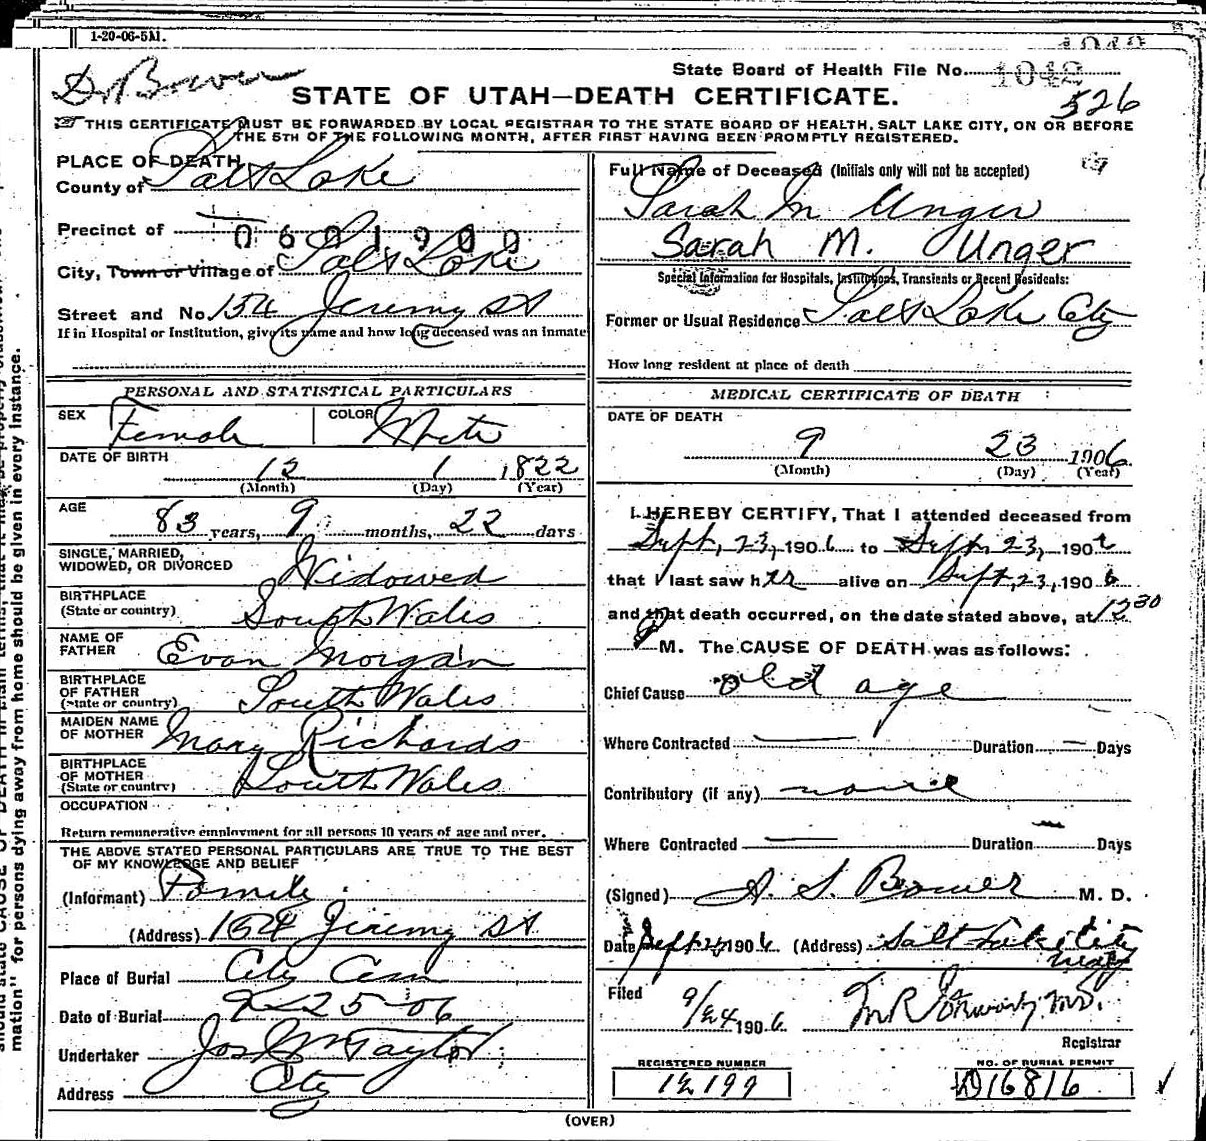 1-20-06-5M.
Dr Bower
State Board of Health File No. 1042
526
STATE OF UTAH—DEATH CERTIFICATE.
THIS CERTIFICATE MUST BE FORWARDED BY LOCAL REGISTRAR TO THE STATE BOARD OF HEALTH, SALT LAKE CITY, ON OR BEFORE
THE 5TH OF THE FOLLOWING MONTH, AFTER FIRST HAVING BEEN PROMPTLY REGISTERED.
PLACE OF DEATH
County of Salt Lake
Precinct of
0601900
City, Town or Village of Salt Lake
Street and No. 154 Jeremy St
If in Hospital or Institution, give its name and how long deceased was an inmate
PERSONAL AND STATISTICAL PARTICULARS
SEX Female COLOR White
DATE OF BIRTH
12 1 1822
(Month) (Day) (Year)
AGE
83 years, 9 months, 22 days
SINGLE, MARRIED,
WIDOWED, OR DIVORCED Widowed
BIRTHPLACE
(State or country) South Wales
NAME OF
FATHER Evan Morgan
BIRTHPLACE
OF FATHER
(State or country) South Wales
MAIDEN NAME
OF MOTHER Mary Richards
BIRTHPLACE
OF MOTHER
(State or country) South Wales
OCCUPATION
Return remunerative employment for all persons 10 years of age and over.
THE ABOVE STATED PERSONAL PARTICULARS ARE TRUE TO THE BEST
OF MY KNOWLEDGE AND BELIEF
(Informant) Family
(Address) 154 Jeremy St
Place of Burial City Cem
Date of Burial 9-25-06
Undertaker Jos Wm Taylor
Address City
Full Name of Deceased (Initials only will not be accepted)
Sarah M Unger
Sarah M. Unger
Special Information for Hospitals, Institutions, Transients or Recent Residents:
Former or Usual Residence Salt Lake City
How long resident at place of death
MEDICAL CERTIFICATE OF DEATH
DATE OF DEATH
9 23 1906
(Month) (Day) (Year)
I HEREBY CERTIFY, That I attended deceased from
Sept, 23, 1906 to Sept, 23, 1906
that I last saw her alive on Sept, 23, 1906
and that death occurred, on the date stated above, at 12 30
P M. The CAUSE OF DEATH was as follows:
Chief Cause old age
Where Contracted — Duration — Days
Contributory (if any) none
Where Contracted — Duration — Days
(Signed) A. S. Bower M. D.
Date Sept 24 1906 (Address) Salt Lake City
Filed 9/24 1906
Registrar
REGISTERED NUMBER
12199
NO. OF BURIAL PERMIT
D16816
(OVER)
mation" for persons dying away from home should be given in every instance.